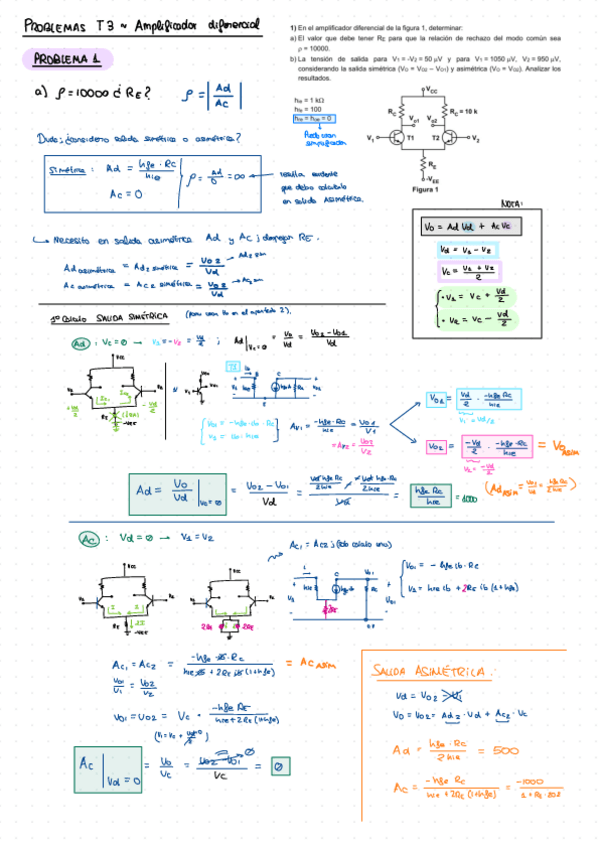 PROBLEMAS T3 ~ Amplificador diferencial
PROBLEMA 1
a) ρ=10000 ¿ RE?
ρ = |Ad/Ac|
1) En el amplificador diferencial de la figura 1, determinar:
a) El valor que debe tener RE para que la relación de rechazo del modo común sea
ρ = 10000.
b) La tensión de salida para V1 = -V2 = 50 µV y para V1 = 1050 µV, V2 = 950 µV,
considerando la salida simétrica (VO = VO2 – VO1) y asimétrica (VO = VO2). Analizar los
resultados.
hie = 1 kΩ
hfe = 100
hre = hoe = 0
VCC
RC
RC = 10 k
Vo1
Vo2
V1
T1
T2
V2
RE
-VEE
Figura 1
Duda: ¿considero salida simétrica o asimétrica?
Simétrica: Ad = hfe · Rc / hie
Ac = 0
ρ = Ad/0 = ∞
resulta evidente
que debo calcularlo
en salida Asimétrica.
NOTA:
Vo = Ad Vd + Ac Vc
Vd = V1 - V2
Vc = (V1 + V2)/2
· V1 = Vc + Vd/2
· V2 = Vc - Vd/2
Necesito en salida asimétrica Ad y Ac ; despejar RE.
Ad asimétrica = Ad2 simétrica = Vo2/Vd
Ac asimétrica = Ac2 simétrica = Vo2/Vd
1º Calculo SALIDA SIMÉTRICA
Ad : Vc = 0 → V1 = -V2 = Vd/2 ; Ad |Vc=0 = Vo/Vd = (Vo2 - Vo1)/Vd
Vo1 = Vd/2 · -hfe Rc/hie
V1 = Vd/2
Av1 = -hfe · Rc/hie = Vo1/V1
= Av2 = Vo2/V2
Vo2 = -Vd/2 · -hfe Rc/hie = Vo asim
V2 = -Vd/2
Ad = Vo/Vd |Vc=0 = (Vo2 - Vo1)/Vd = hfe Rc/hie = 1000
Ac : Vd = 0 → V1 = V2
Ac1 = Ac2 ; (solo calculo uno)
Vo1 = - hfe ib · Rc
V1 = hie ib + 2RE ib (1+hfe)
Ac1 = Ac2 = -hfe · ib · Rc / (hie ib + 2RE ib (1+hfe)) = Ac asim
Vo1/V1 = Vo2/V2
Vo1 = Vo2 = Vc · -hfe Rc / (hie + 2RE (1+hfe))
(V1 = Vc + Vd/2)
Ac |Vd=0 = Vo/Vc = (Vo2 - Vo1)/Vc = 0
SALIDA ASIMÉTRICA :
Vd = Vo2 - Vo1
Vo = Vo2 = Ad2 · Vd + Ac2 · Vc
Ad = hfe · Rc / 2 hie = 500
Ac = -hfe Rc / (hie + 2RE (1+hfe)) = -1000 / (1 + RE · 202)